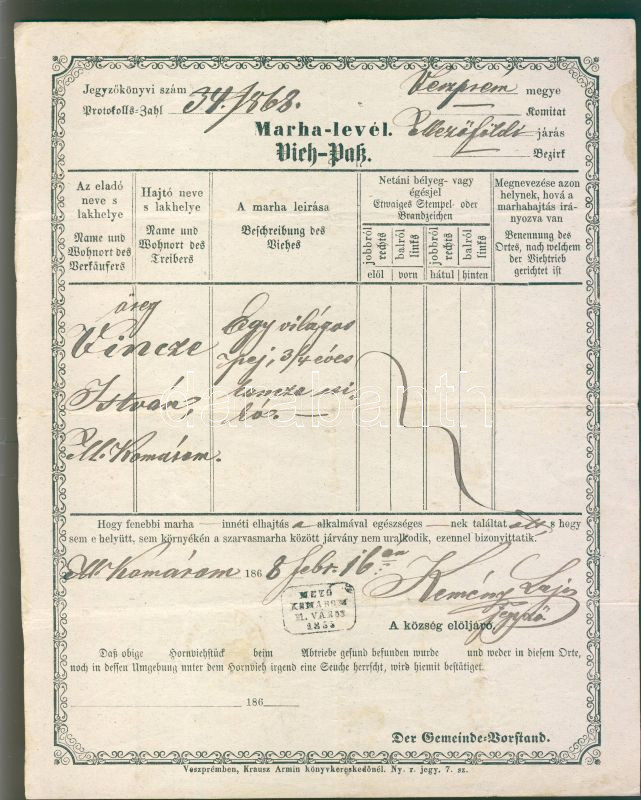 Jegyzőkönyvi szám 34./1868. Veszprém megye
Protokolls-Zahl Komitat
Marha-levél. Mezőföldi járás
Vieh-Paß. Bezirk
Az eladó neve s lakhelye
Name und Wohnort des Verkäufers
Hajtó neve s lakhelye
Name und Wohnort des Treibers
A marha leirása
Beschreibung des Viehes
Netáni bélyeg- vagy égésjel
Etwaiges Stempel- oder Brandzeichen
jobbról rechts
balról links
jobbról rechts
balról links
elöl vorn hátul hinten
Megnevezése azon helynek, hová a marhabajtás irányozva van
Benennung des Ortes, nach welchem der Viehtrieb gerichtet ist
öreg
Vincze
István,
M. Komárom.
Egy világos
pej, 3/4 éves
kancza csi-
kó. —
Hogy fenebbi marha — innéti elhajtás a alkalmával egészséges —nek találtatott s hogy
sem e helyütt, sem környékén a szarvasmarha között járvány nem uralkodik, ezennel bizonyittatik.
M. Komárom 1868 febr. 16án
Kemény Lajos
MEZŐ
KOMAROM
M. VÁROS
A község elöljáró.
Daß obige Hornviehstück beim Abtriebe gesund befunden wurde und weder in diesem Orte,
noch in dessen Umgebung unter dem Hornvieh irgend eine Seuche herrscht, wird hiemit bestätiget.
186
Der Gemeinde-Vorstand.
Veszprémben, Krausz Armin könyvkereskedőnél. Ny. r. jegy. 7. sz.
darabanth